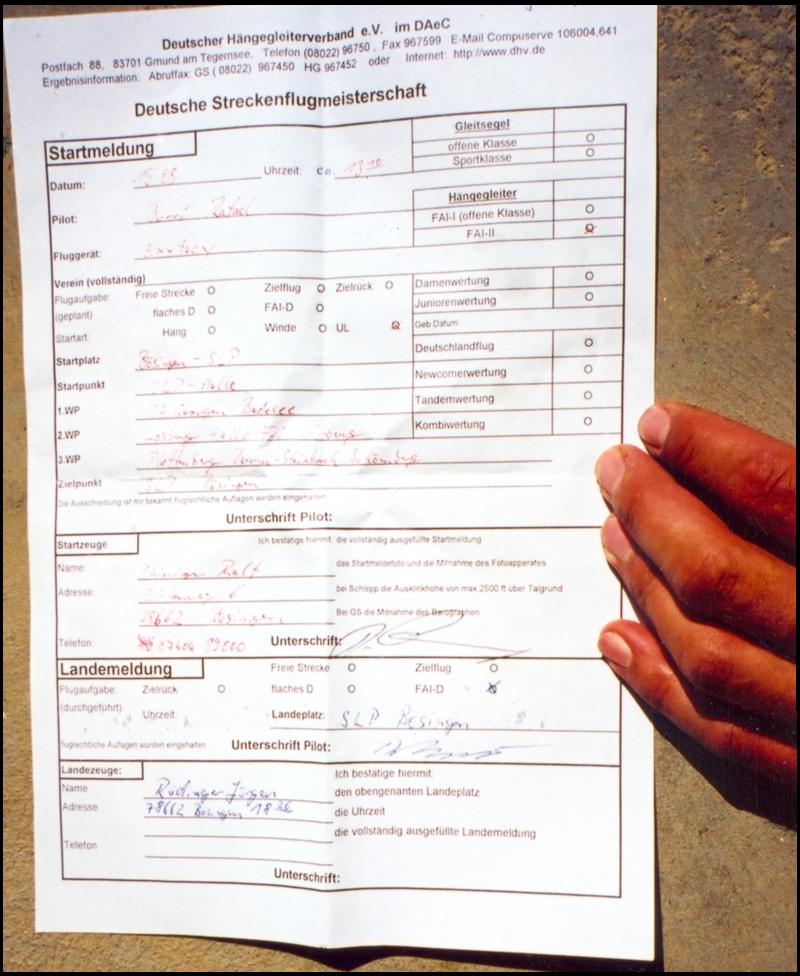 Deutscher Hängegleiterverband e.V. im DAeC
Postfach 88, 83701 Gmund am Tegernsee, Telefon (08022) 96750, Fax 967599 E-Mail Compuserve 106004,641
Ergebnisinformation: Abruffax: GS (08022) 967450 HG 967452 oder Internet: http://www.dhv.de
Deutsche Streckenflugmeisterschaft
Startmeldung
Gleitsegel
offene Klasse O
Sportklasse O
Datum: Uhrzeit: ca. 13
Pilot: Rafael
Hängegleiter
FAI-I (offene Klasse) O
FAI-II O
Fluggerät:
Verein (vollständig)
Flugaufgabe: Freie Strecke O Zielflug O Zielrück O
(geplant) flaches D O FAI-D O
Startart: Hang O Winde O UL O
Damenwertung O
Juniorenwertung O
Geb Datum:
Deutschlandflug O
Newcomerwertung O
Tandemwertung O
Kombiwertung O
Startplatz Bösingen - SLP
Startpunkt SLP - Halle
1.WP Badesee
2.WP Halle
3.WP Plettenberg
Zielpunkt SLP Bösingen
Die Ausschreibung ist mir bekannt flugrechtliche Auflagen werden eingehalten
Unterschrift Pilot:
Startzeuge
Ich bestätige hiermit: die vollständig ausgefüllte Startmeldung
Name: Ralf
das Startmeldefoto und die Mitnahme des Fotoapperates
Adresse: 6
bei Schlepp die Ausklinkhöhe von max 2500 ft über Talgrund
78662 Bösingen
Bei GS die Mitnahme des Barographen
Telefon: 07404
Unterschrift:
Landemeldung
Freie Strecke O Zielflug O
Flugaufgabe: Zielrück O flaches D O FAI-D
(durchgeführt) Uhrzeit: Landeplatz: SLP Bösingen
flugrechtliche Auflagen wurden eingehalten Unterschrift Pilot:
Landezeuge:
Ich bestätige hiermit:
Name Rudinger Jürgen
den obengenanten Landeplatz
Adresse 78662 Bösingen 18
die Uhrzeit
die vollständig ausgefüllte Landemeldung
Telefon
Unterschrift: